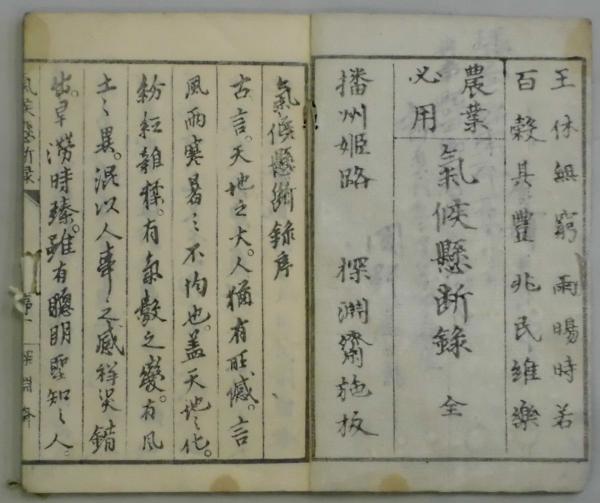 王休無窮 雨暘時若
百穀其豐 兆民維樂
農業
必用
氣候懸断錄 全
播州姫路 探淵齋施板
氣候懸断錄序
古言。天地之大。人猶有所憾。言
風雨寒暑之不均也。盖天地之化。
紛紜雜糅。有氣數之變。有風
土之異。混以人事之感。祥災錯
出。旱澇時臻。雖有聰明聖知之人。
氣候懸断錄
序一
探淵齋